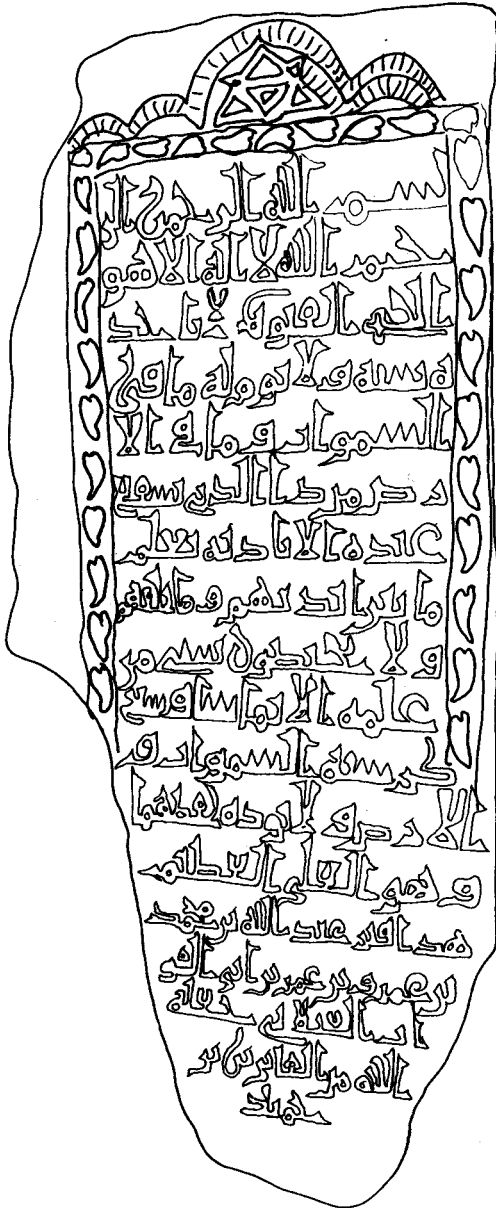 بسم الله الرحمن الر
حيم الله لا اله الا هو
الحي القيوم لا تاخذ
ه سنه ولا نوم له ما في
السموات وما في الا
رض من ذا الذي يشفع
عنده الا باذنه يعلم
ما بين ايديهم وما خلفهم
ولا يحيطون بشي من
علمه الا بما شا وسع
كرسيه السموات و
الارض ولا يوده حفظهما
وهو العلي العظيم
هذا قبر عبد الله بن محمد
بن عمرو بن عمر بن ابي
الله من